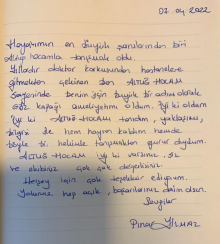 02.04.2022
Hayatımın en büyük şanslarından biri
Altuğ hocamla tanışmak oldu.
Yıllardır doktor korkusundan hastanelere
gitmekten çekinen ben ALTUĞ HOCAM
sayesinde benim için büyük bir adım olarak
göz kapağı ameliyatımı oldum. İyi ki oldum
iyi ki ALTUĞ HOCAMI tanıdım, yaklaşımı,
bilgisi ile hem hayran kaldım hemde
böyle bir hekimle tanışmaktan gurur duydum.
ALTUĞ HOCAM iyi ki varsınız, siz
ve ekibiniz çok çok değerlisiniz.
Herşey için çok teşekkür ediyorum.
Yolunuz hep açık, başarılarınız daim olsun.
Sevgiler
Pınar YILMAZ